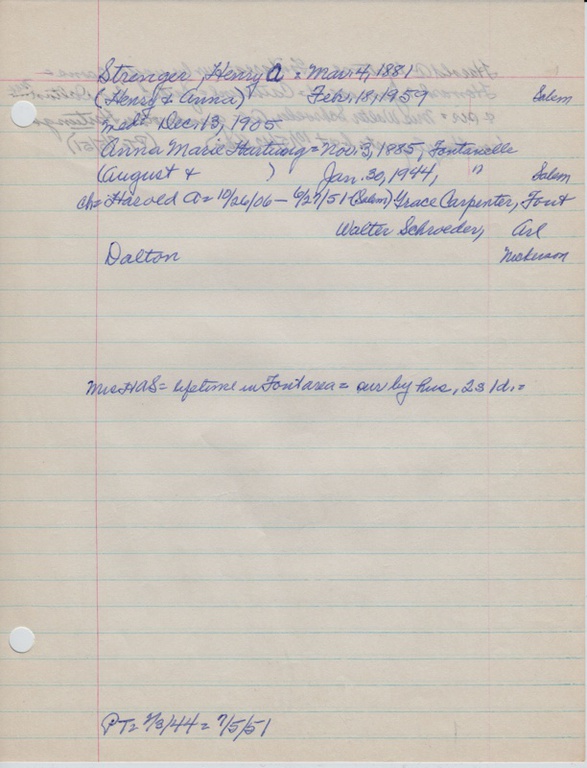 Strenger, Henry A = Mar. 4, 1881
(Henry & Anna) Feb. 18, 1959 Salem
md = Dec. 13, 1905
Anna Marie Hartung = Nov. 3, 1885, Fontanelle
(August & ) Jan. 30, 1944, " Salem
ch = Harold A = 10/26/06 – 6/27/51 (Salem) Grace Carpenter, Font
Walter Schroeder, Arl
Dalton Nickerson
Mrs HAS = lifetime in Font area = sur by hus, 2s 1d. =
PT = 2/3/44 = 7/5/51